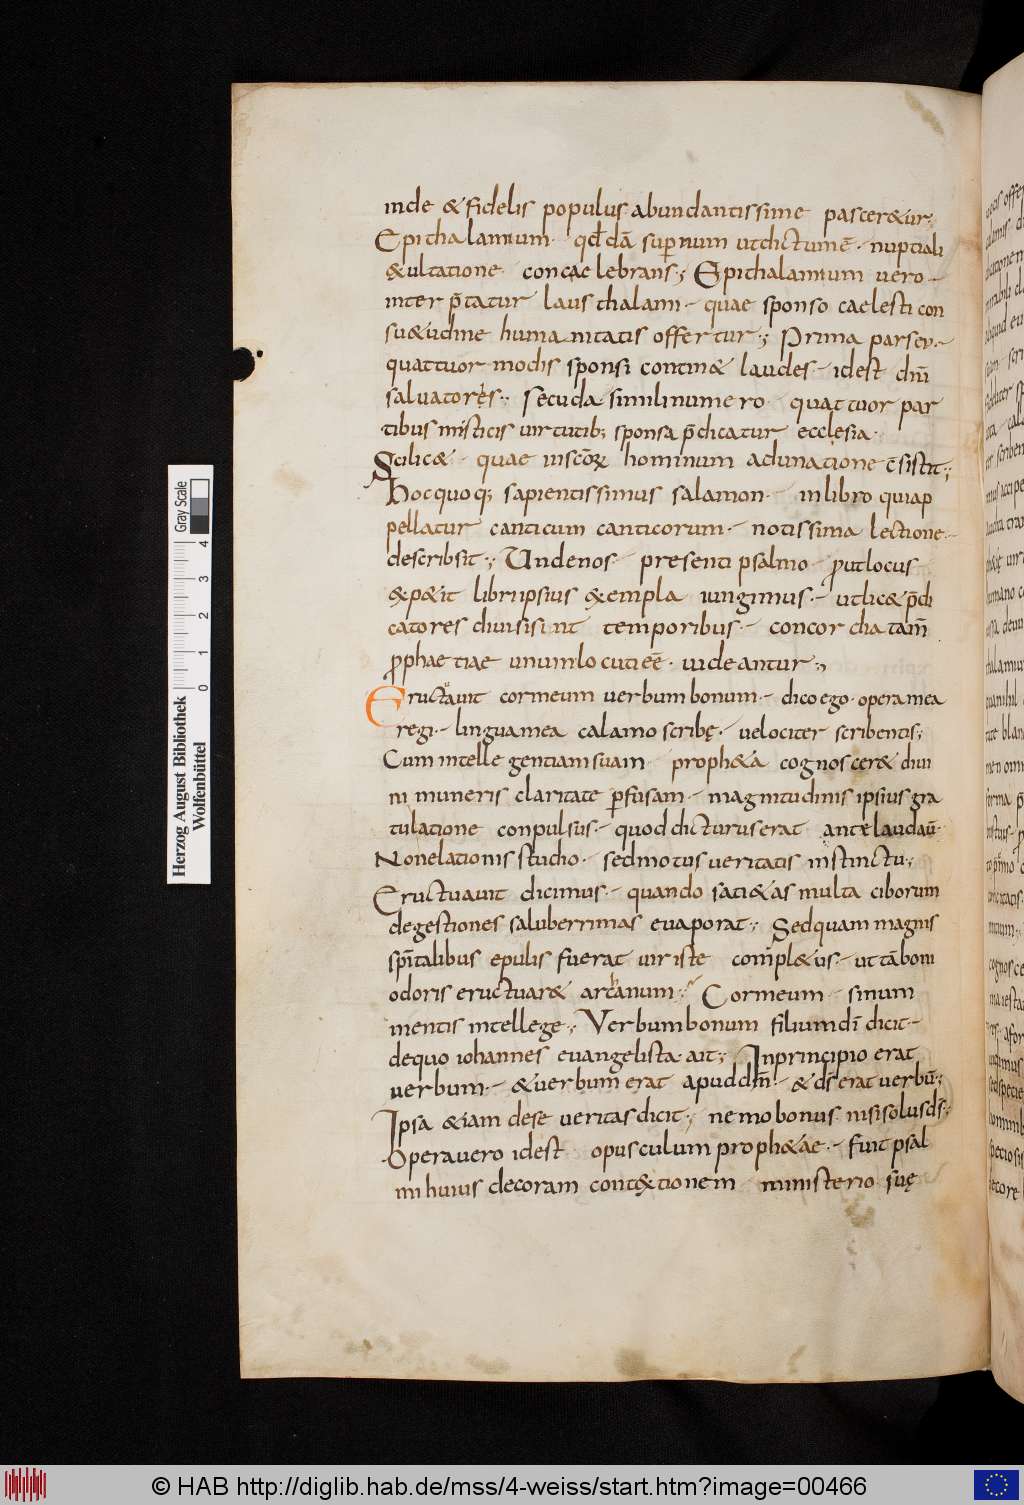 inde & fidelis populus abundantissime pascer&ur;
Epithalamium · qđ dā sup̄num utdictumē · nuptiali
&ultatione · concaelebrans; Epithalamium uero ·
inter p̄tatur laus thalami · quae sponso caelesti con
su&udine humanitatis offertur; Prima pars eų ·
quattuor modis sponsi contin& laudes · idest dn̄i
saluatoris; Secuda similinumero · quattuor par
tibus misticis uirtutib; sponsa p̄dicatur ecclesia ·
Scilic& · quae uiscōꝝ hominum adunatione c̄sistit;
hocquoq; sapientissimus salamon · inlibro quiap
pellatur canticum canticorum · notissima lectione ·
describsit; Undenos · presenti psalmo · ꝓutlocus
&p&it libriipsius &empla iungimus · utlic& p̄di
catores diuisisint temporibus · concordia tam̄
ꝓphaetiae unuinlocutieē · uideantur;
Eructauit cormeum uerbumbonum · dicoego · operamea
regi · linguamea calamo scribę · uelociter scribentis;
Cum intellegentiamsuam proph&a cognoscer& diui
ni muneris claritate p̄fusam · magnitudinis ipsius gra
tulatione conpulsus · quod dicturuserat antelaudaū ·
Nonelationis studio · sedmotus ueritatis instinctu;
Eructuauit dicimus · quando saci&as multa ciborum
degestiones saluberrimas euaporat; Sedquam magnis
spīitalibus epulis fuerat uir iste compl&us · ut tāboni
odoris eructuar& arcanum; Cormeum sinum
mentis intellege; Verbumbonum filiumdī dicit ·
dequo iohannes euangelista · ait; Inprincipio erat
uerbum · &uerbum erat apuddm̄ · & ds̄ erat uerbū;
Ipsa &iam dese ueritas dicit; nemobonus nisisolusds̄;
Operauero idest opusculum proph&ae · fuit psal
mi huius decoram cont&tionem ministerio suę
Herzog August Bibliothek
Wolfenbüttel
0 1 2 3 4
Gray Scale
© HAB http://diglib.hab.de/mss/4-weiss/start.htm?image=00466